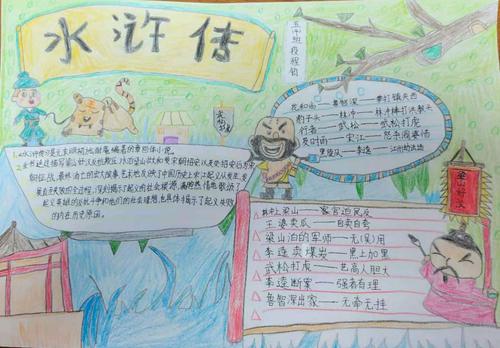 水浒传
五(4)班 段程铭
武松打虎
1.《水浒传》是元末明初施耐庵编著的章回体小说。
2.全书通过描写梁山好汉反抗欺压、水泊梁山壮大和受宋朝招安,以及受招安后为
宋朝征战,最终消亡的宏大故事,艺术地反映了中国历史上宋江起义从发生、发
展直至失败的全过程,深刻揭示了起义的社会根源,满腔热情地歌颂了
起义英雄的反抗斗争和他们的社会理想,也具体揭示了起义失败
的内在历史原因。
花和尚——鲁智深——拳打镇关西
豹子头——林冲——林冲棒打洪教头
行者——武松——武松打虎
及时雨——宋江——怒杀阎婆惜
黑旋风——李逵——江州劫法场
梁山好汉
林冲上梁山——官逼民反
王婆卖瓜——自卖自夸
梁山泊的军师——无(吴)用
李逵卖煤炭——黑上加黑
武松打虎——艺高人胆大
李逵断案——强者有理
鲁智深出家——无牵无挂